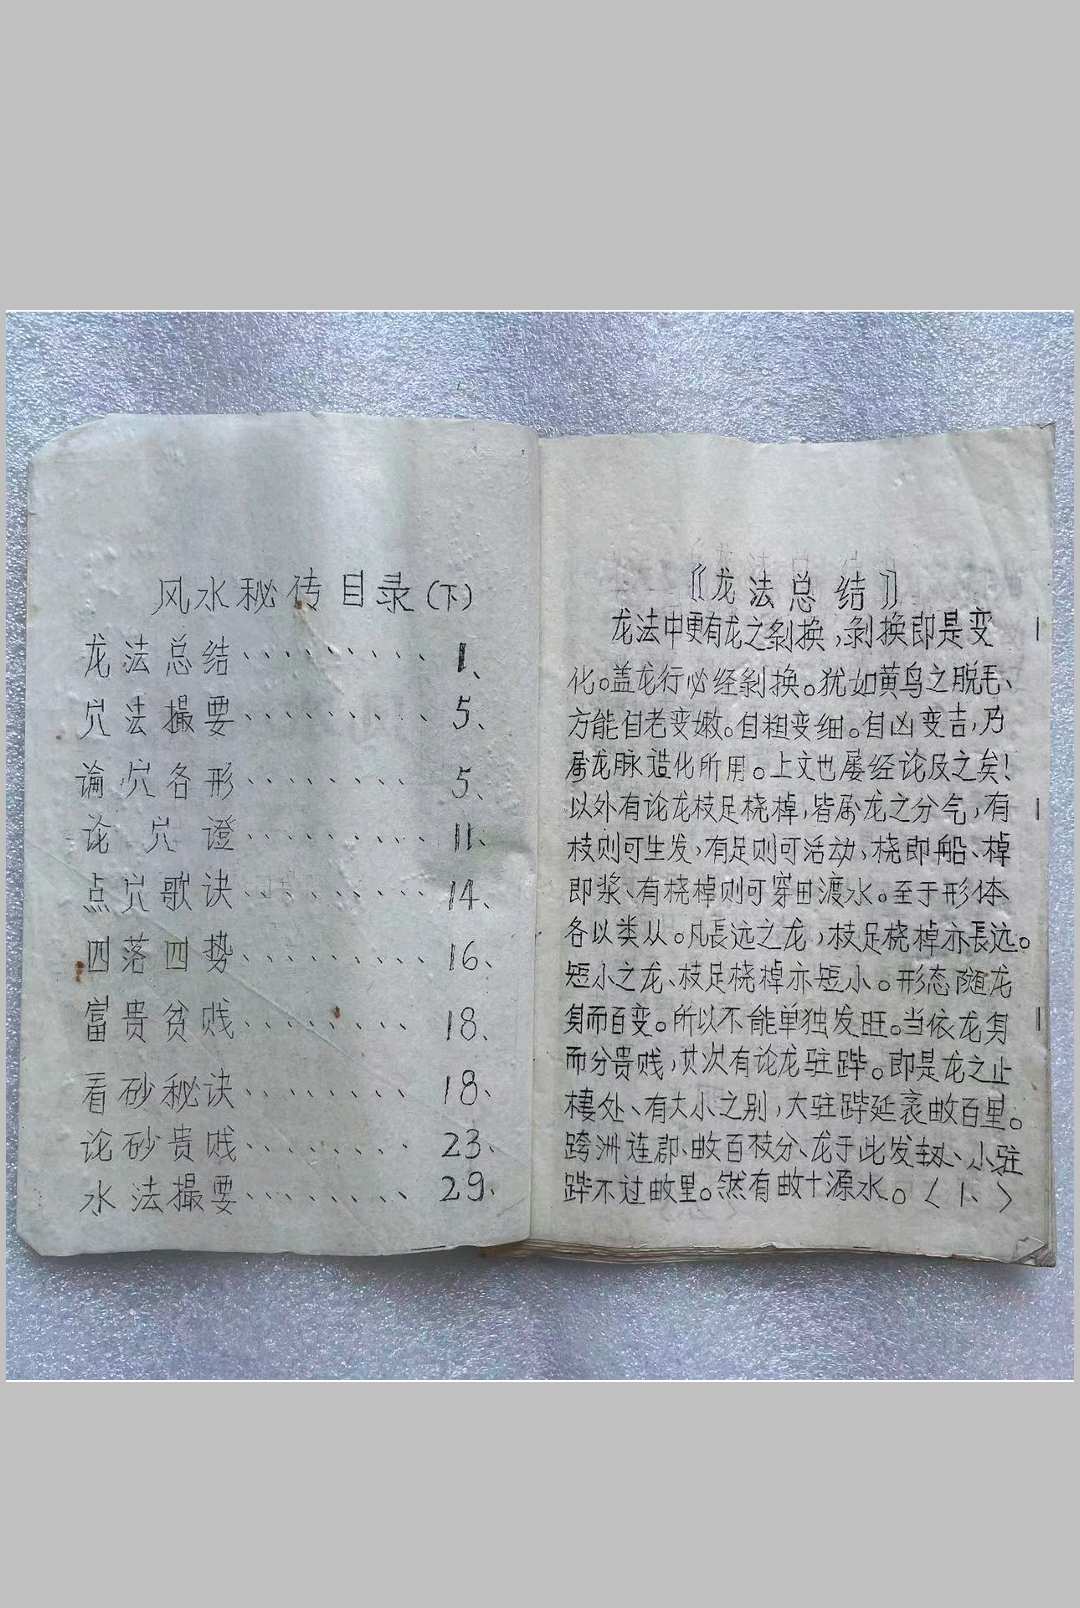 风水秘传目录(下)
龙法总结、、、、、、、、、1、
穴法撮要、、、、、、、、、5、
论穴各形、、、、、、、、5、
论穴證、、、、、、、、11、
点穴歌诀、、、、、、、14、
四落四势、、、、、、、、、16、
富贵贫贱、、、、、、、、18、
看砂秘诀、、、、、、、、18、
论砂贵贱、、、、、、、23、
水法撮要、、、、、、、、29、
《龙法总结》
龙法中更有龙之剝换,剥换即是变
化。盖龙行必经剝换。犹如黄鸟之脱毛、
方能自老变嫩。自粗变细。自凶变吉,乃
属龙脉造化所用。上文也屡经论及之矣!
以外有论龙枝足桡棹,皆属龙之分气,有
枝则可生发,有足则可活动、桡即船、棹
即桨、有桡棹则可穿田渡水。至于形体
各以类从。凡長远之龙,枝足桡棹亦長远。
短小之龙、枝足桡棹亦短小。形态随龙
身而百变。所以不能单独发旺。当依龙身
而分贵贱,其次有论龙驻跸。即是龙之止
棲处、有大小之别,大驻跸延袤 百里。
跨洲连郡、 百枝分、龙于此发轫、小驻
跸不过 里。然有 十源水。〈1、〉